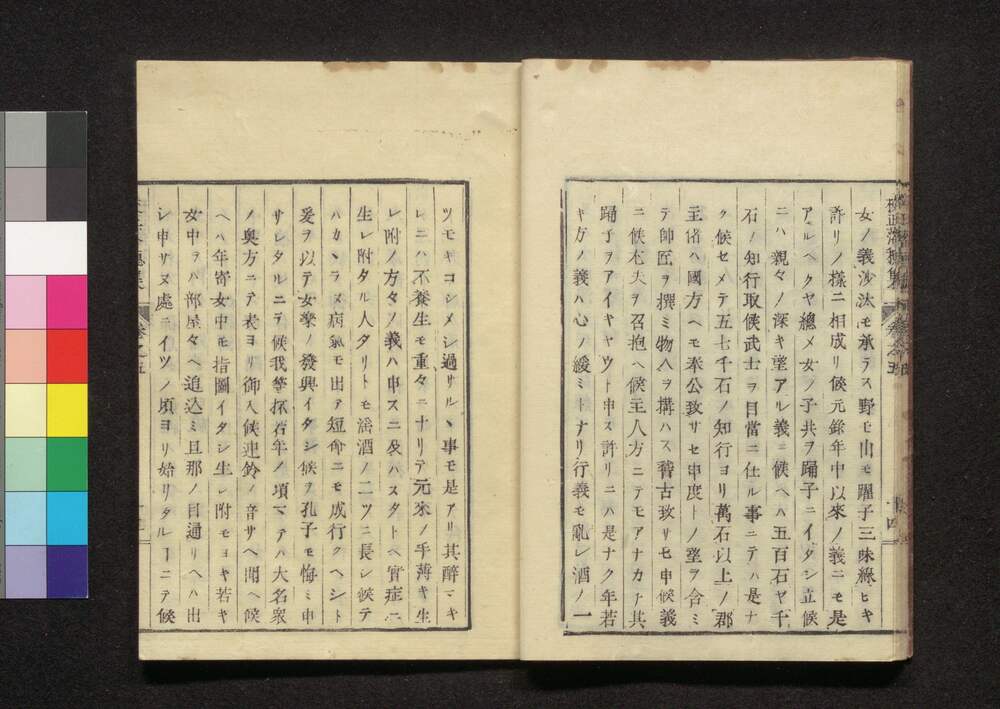 女ノ義沙汰モ承ラス野モ山モ躍子三味線ヒキ
許リノ樣ニ相成リ候元錄年中以來ノ義ニモ是
アルヘクヤ總メ女ノ子共ヲ踊子ニイタシ立候
ニハ親々ノ深キ望アル義ニ候ヘハ五百石ヤ千
石ノ知行取候武士ヲ目當ニ仕ル事ニテハ是ナ
ク候セメテ五七千石ノ知行ヨリ萬石以上ノ郡
主偖ハ國方ヘモ奉公致サセ申度トノ望ヲ含ミ
テ師匠ヲ撰ミ物入ヲ搆ハス嗇古致サセ申候義
ニ候夫ヲ召抱ヘ候主人方ニテモアナカチ其
踊子ヲアイキヤウト申ス許リニハ是ナク年若
キ方ノ義ハ心ノ緩ミトナリ行義モ亂レ酒ノ一
卷之五
十四
ツモキコシメシ過サルヽ事モ是アリ其醉マキ
レニハ不養生モ重々ニナリテ元來ノ手薄キ生
レ附ノ方々ノ義ハ申スニ及ハスタトヘ實症ニ
生レ附タル人タリトモ滛酒ノ二ツニ長シ候テ
ハカヽラヌ病氣モ出テ短命ニモ成行クヘシト
爰ヲ以テ女樂ノ發興イタシ候ヲ孔子モ悔ミ申
サレタルニテ候我等抔若年ノ頃マテハ大名衆
ノ奧方ニテ表ヨリ御入候迎鈴ノ音サヘ聞ヘ候
ヘハ年寄女中モ指圖イタシ生レ附モヨキ若キ
女中ヲハ部屋々ヘ追込ミ旦那ノ目通リヘハ出
シ申サヌ處ニイツノ頃ヨリ始リタルヿニテ候